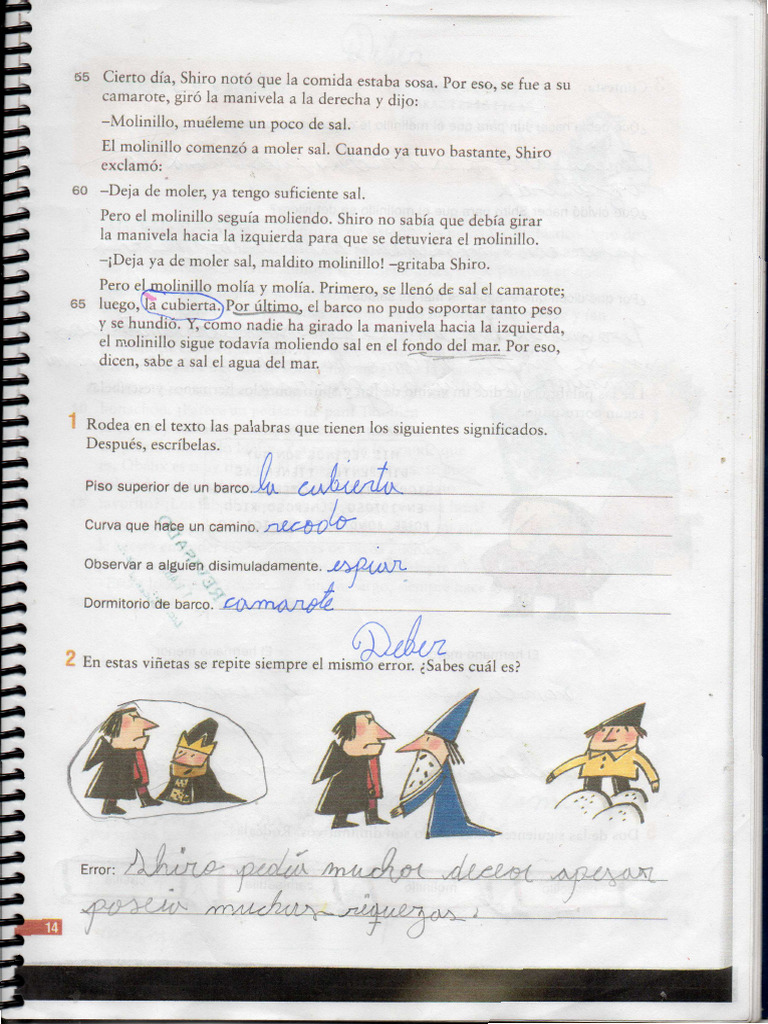 55 Cierto día, Shiro notó que la comida estaba sosa. Por eso, se fue a su
camarote, giró la manivela a la derecha y dijo:
–Molinillo, muéleme un poco de sal.
El molinillo comenzó a moler sal. Cuando ya tuvo bastante, Shiro
exclamó:
60 –Deja de moler, ya tengo suficiente sal.
Pero el molinillo seguía moliendo. Shiro no sabía que debía girar
la manivela hacia la izquierda para que se detuviera el molinillo.
–¡Deja ya de moler sal, maldito molinillo! –gritaba Shiro.
Pero el molinillo molía y molía. Primero, se llenó de sal el camarote;
65 luego, la cubierta. Por último, el barco no pudo soportar tanto peso
y se hundió. Y, como nadie ha girado la manivela hacia la izquierda,
el molinillo sigue todavía moliendo sal en el fondo del mar. Por eso,
dicen, sabe a sal el agua del mar.
1 Rodea en el texto las palabras que tienen los siguientes significados.
Después, escríbelas.
Piso superior de un barco. la cubierta
Curva que hace un camino. recodo
Observar a alguien disimuladamente. espiar
Dormitorio de barco. camarote
Deber
2 En estas viñetas se repite siempre el mismo error. ¿Sabes cuál es?
Error: Shiro pedía muchos deceos apesar
poseia muchas riquezas.
14